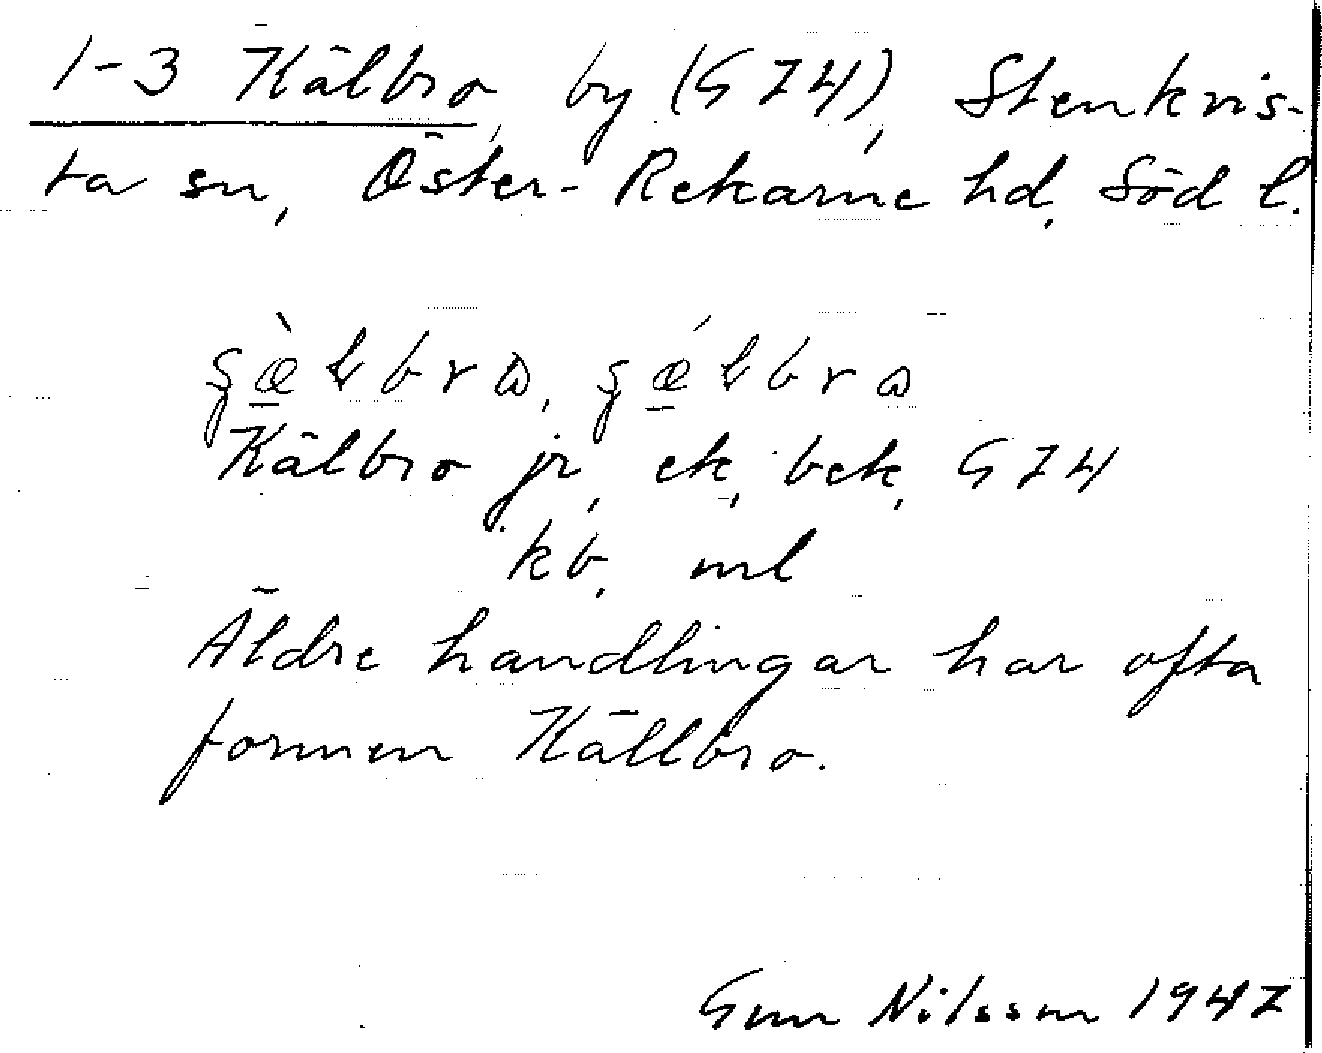 1-3 Kälbro, by (G 74), Stenkvis-
ta sn, Öster-Rekarne hd, Söd l.
Kälbro jr, ek, bek, G 74
kb, ml
Äldre handlingar har ofta
formen Källbro.
Gun Nilsson 1947